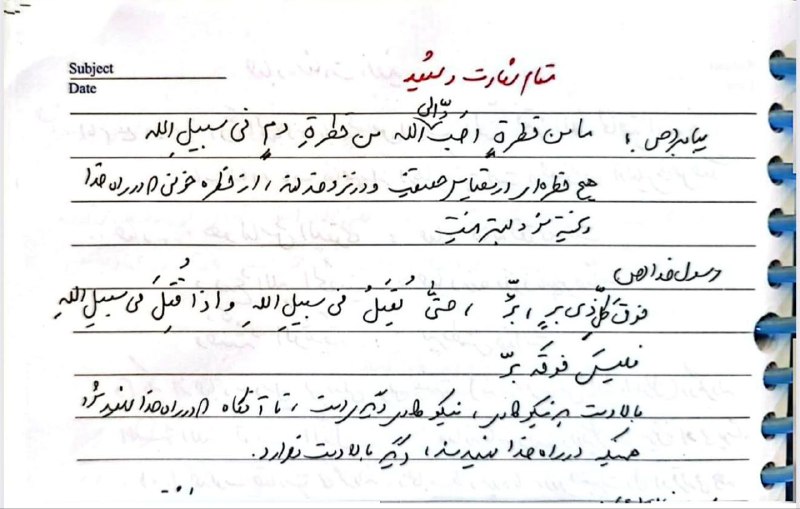 Subject
Date
مقام شهادت و شهید
پیامبر ص : ما من قطرةٍ احَبُّ الی الله من قطرةِ دمٍ فی سبیلِ الله
هیچ قطره‌ای در مقیاس حقیقت و در نزد خدا، از قطره خونی که در راه خدا
ریخته شود بهتر نیست
رسول خدا ص
فوقَ کلِّ ذی برٍ ، بّرُ ، حتّی یُقتَلُ فی سبیلِ اللهِ و اذا قُتِلَ فی سبیلِ اللهِ
فلیسَ فوقَه بّر
بالا دست هر نیکوکاری ، نیکوکار دیگری است ، تا آنگاه که در راه خدا شهید شود
همینکه در راه خدا شهید شد ، دیگر بالا دست ندارد.